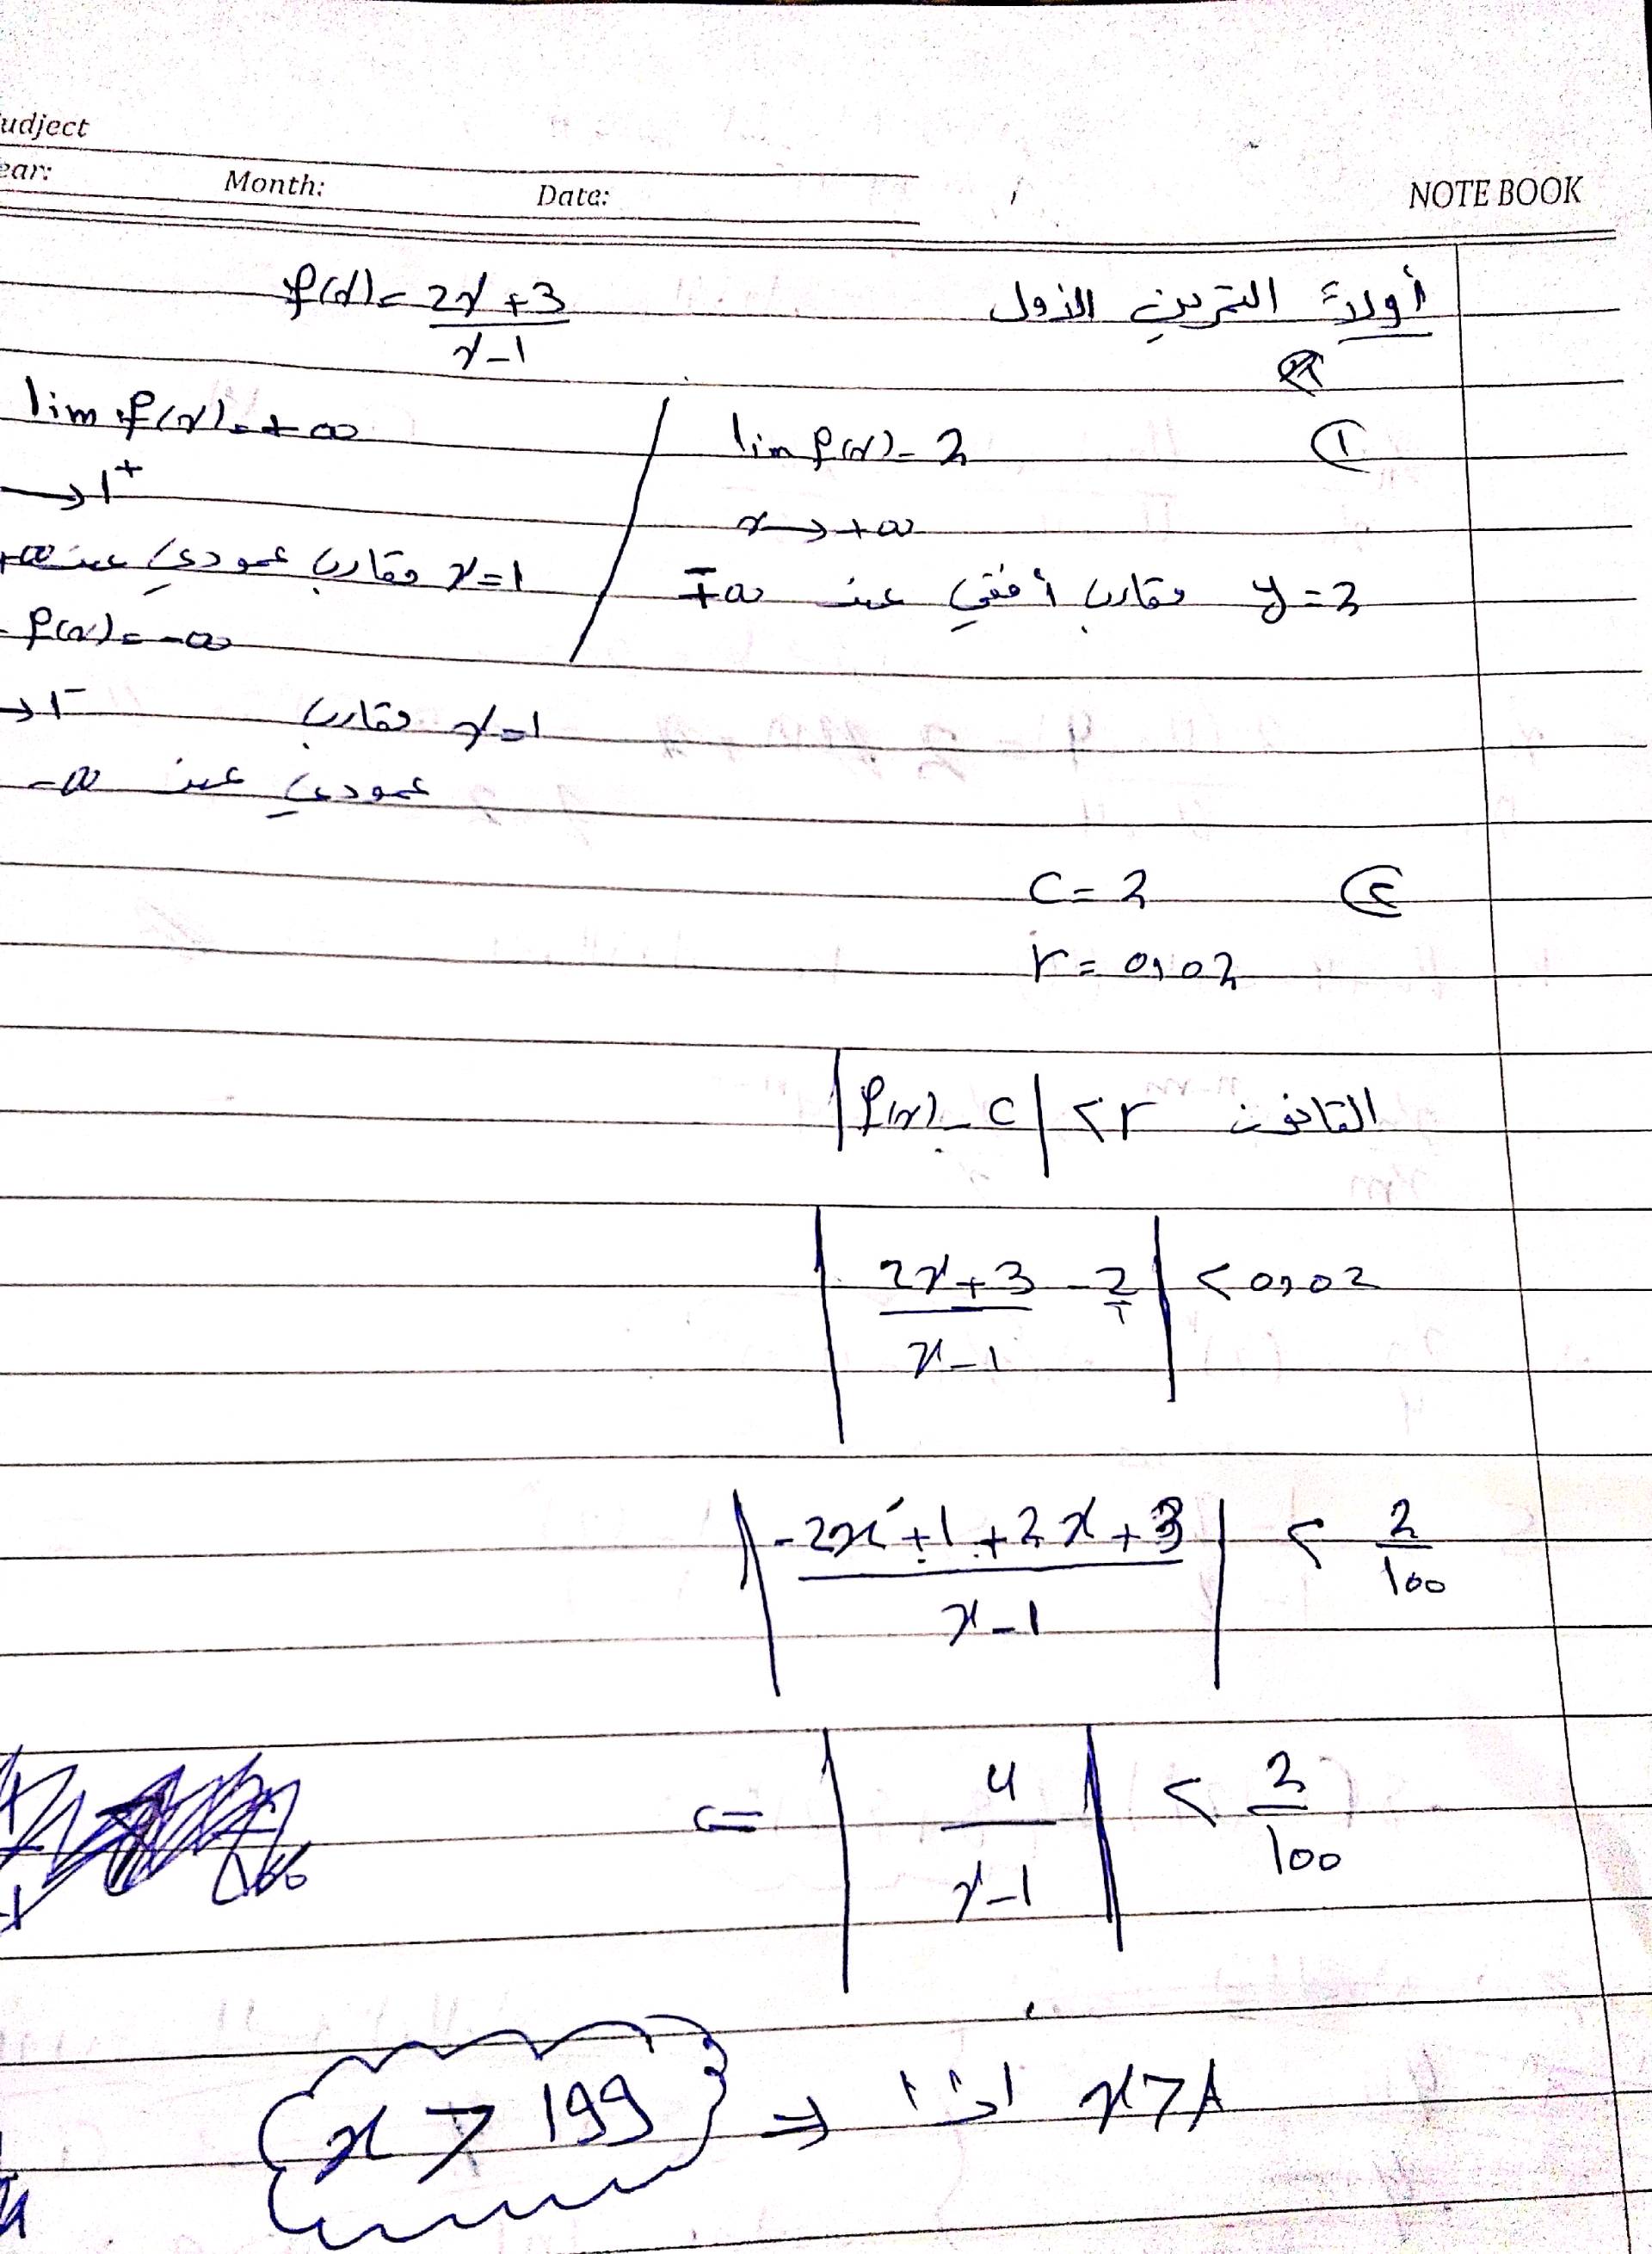 udject
ear: Month: Date:
NOTE BOOK
أولاً التمرين الأول f(x) = 2x+3 / x-1
① lim f(x) = 2
x → +∞
y = 2 مقارب أفقي عند ∓∞
lim f(x) = +∞
→ 1+
x = 1 مقارب عمودي عند +∞
f(x) = -∞
→ 1-
x = 1 مقارب
عمودي عند -∞
② c = 2
r = 0,02
القانون |f(x) - c| < r
| 2x+3 / x-1 - 2/1 | < 0,02
| -2x+1+2x+3 / x-1 | < 2/100
= | 4 / x-1 | < 2/100
x > A اذا ⇒ x > 199